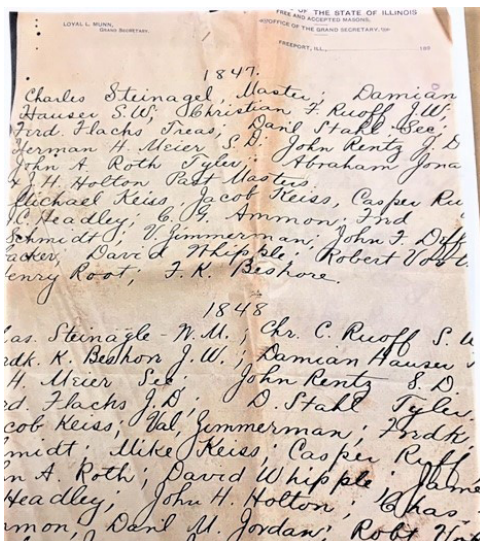 OF THE STATE OF ILLINOIS
FREE AND ACCEPTED MASONS,
LOYAL L. MUNN,
GRAND SECRETARY.
OFFICE OF THE GRAND SECRETARY,
FREEPORT, ILL., 189
1847.
Charles Steinagel, Master; Damian
Hauser S.W, Christian F. Ruoff J.W;
Frd. Flachs Treas, Danl Stahl Sec;
Herman H. Meier S.D. John Rentz J.D
John A. Roth Tyler; Abraham Jona
J.H. Holton Past Masters.
Michael Keiss, Jacob Keiss, Casper Ru
J.C. Headley; C. G. Ammon; Frd
Schmidt; V. Zimmerman; John F. Diff
acker, David Whipple; Robert
Henry Root; F. K. Beshore.
1848
has. Steinagle - W.M.; Chr. C. Ruoff S.W
rdk. K. Beshore J.W.; Damian Hauser
H. Meier Sec; John Rentz S.D.
ed. Flachs J.D; D. Stahl Tyler.
cob Keiss; Val, Zimmerman; Frdk,
hmidt; Mike Keiss; Casper Ruff
n A. Roth; David Whipple; Jame
Headley; John H. Holton; Chas
mmon, Danl M. Jordan; Robt